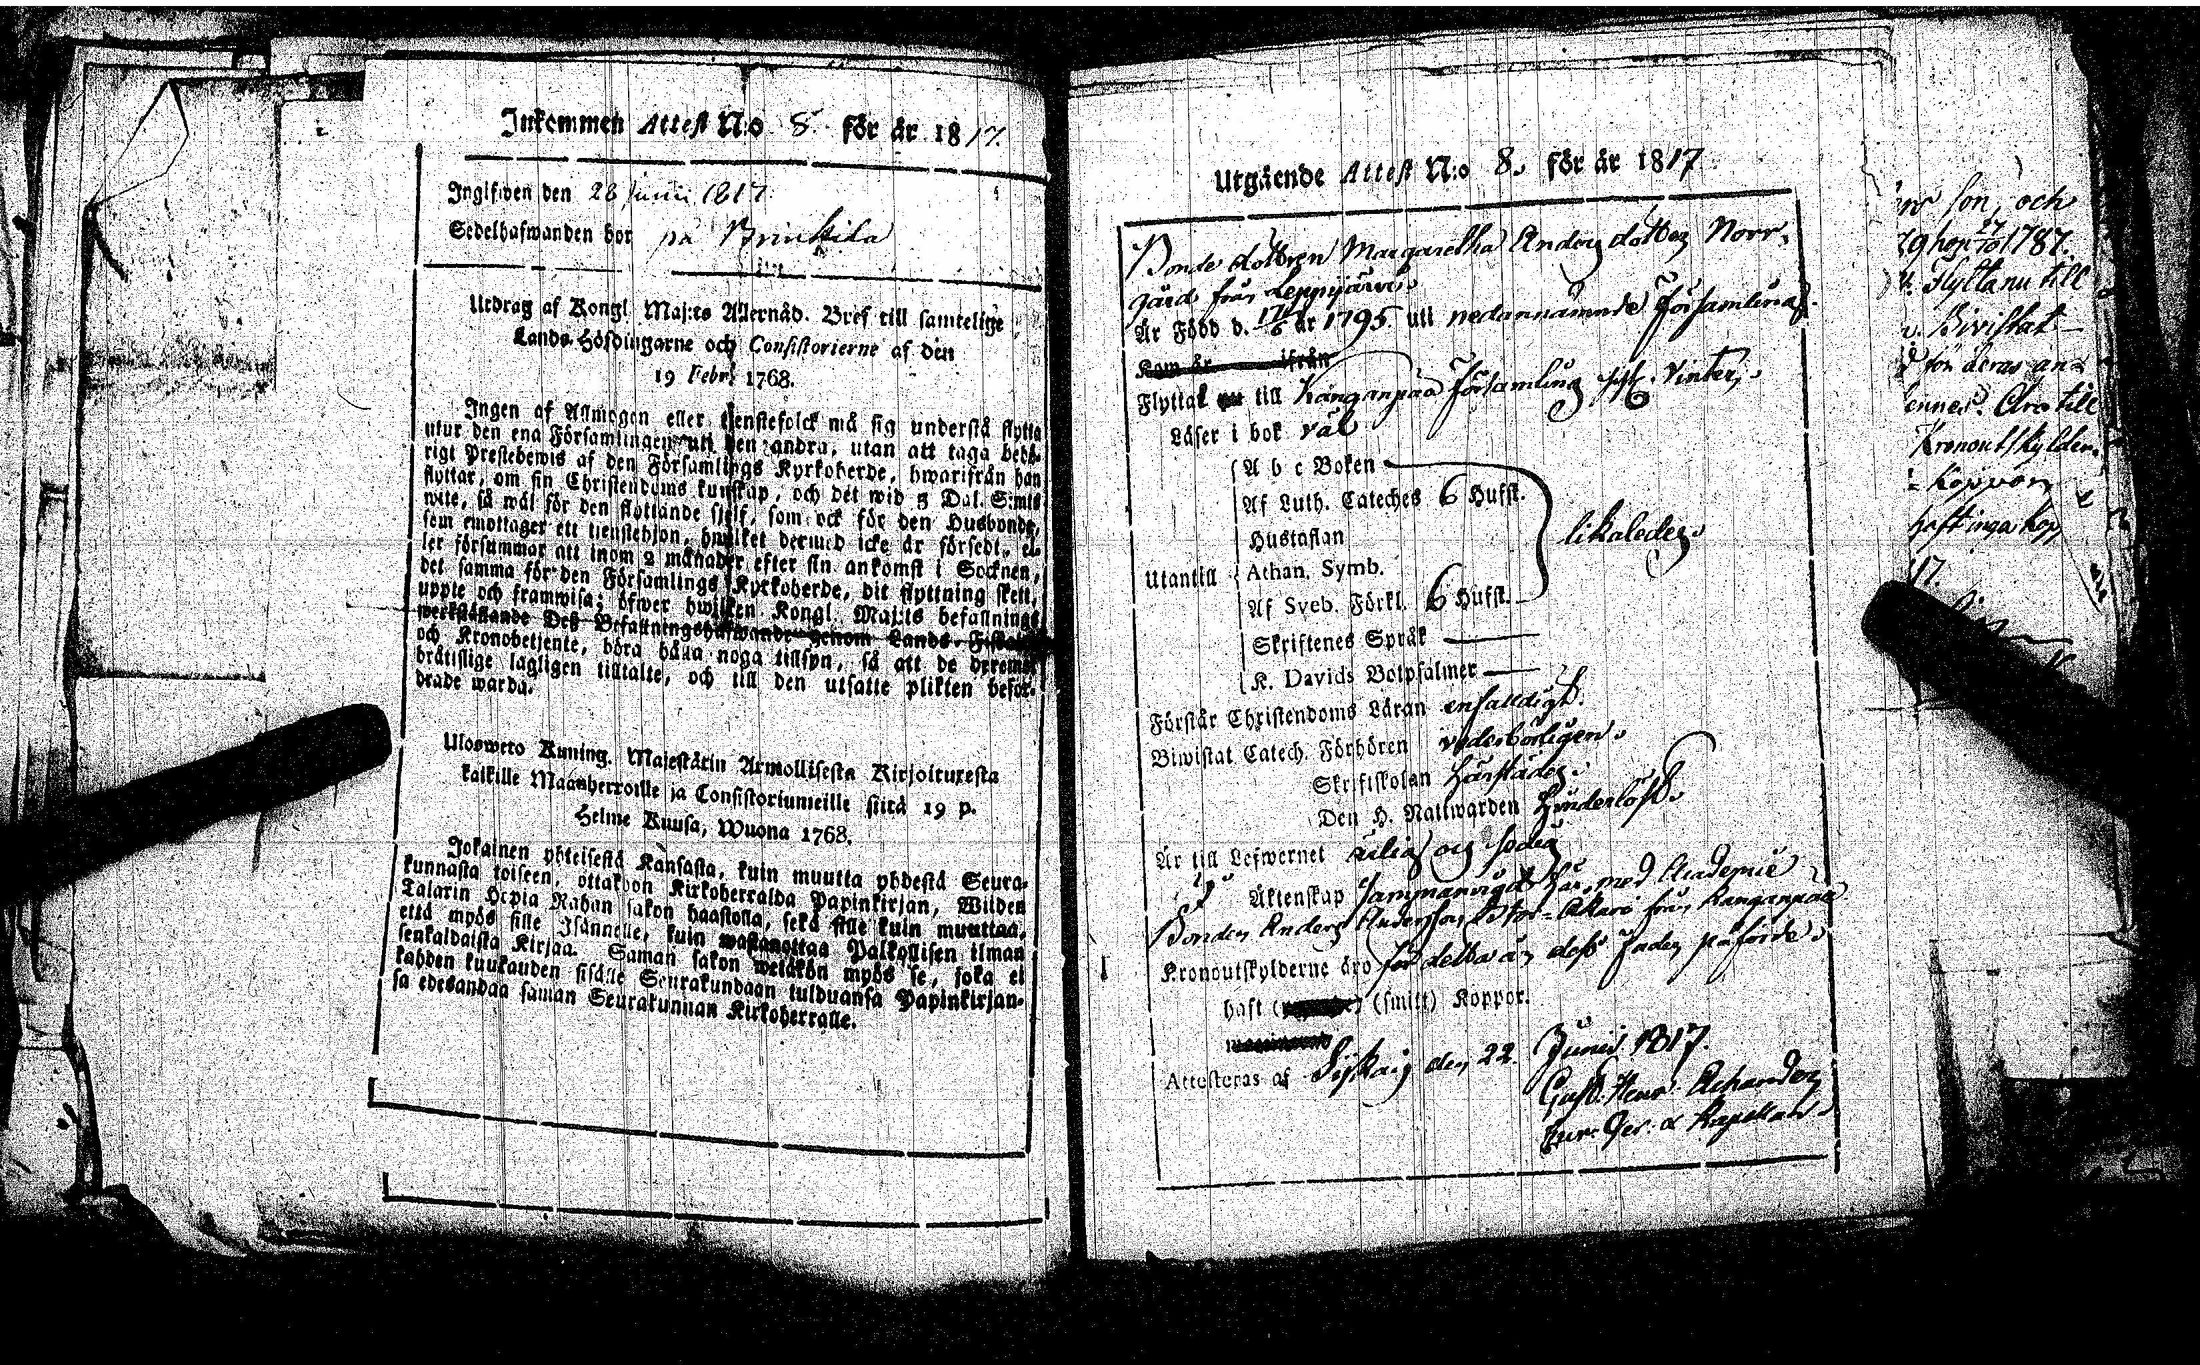 Inkommen Attest N:o 8. för år 1817.
Inglfwen den 28 Junii 1817.
Sedelhafwanden bor på Brinkila
Utdrag af Kongl. Maj:ts Allernåd. Bref till samtelige
Lands-Höfdingarne och Consistorierne af den
19 Febr. 1768.
Ingen af Allmogen eller tjenstefolck må sig understå flytta
utur den ena Församlingen uti den andra, utan att taga behö-
rigt Prestebewis af den Församlings Kyrkoherde, hwarifrån han
flyttar, om sin Christendoms kunskap, och det wid 5 Dal. S:mts
wite, så wäl för den flyttande sjelf, som ock för den Husbonde,
som emottager ett tienstehjon, hwilket dermed icke är försedt, el-
ler försummar att inom 2 månader efter sin ankomst i Socknen,
det samma för den Församlings Kyrkoherde, dit flyttning skett,
uppte och framwisa; öfwer hwilken Kongl. Maj:ts befallnings
werkställande Deß Befallningshafwande genom Lands-Fiskaler
och Kronobetjente, böra hålla noga tillsyn, så att de
bråtslige lagligen tilltalte, och till den utsatte plikten befor-
drade warda.
Uloswero Kuning. Majestärin Armollisesta Kirjoituxesta
kaikille Maanherroille ja Consistoriumeille siitä 19 p.
Helme Kuusa, Wuona 1768.
Jokainen yhteisestä Kansasta, kuin muutta yhdestä Seura-
kunnasta toiseen, ottakoon Kirkoherralda Papinkirjan, Wiiden
Talarin Hopia Rahan sakon haastolla, sekä sille kuin muuttaa,
että myös sille Isännelle, kuin wastanottaa Palkollisen ilman
senkaldaista Kirjaa. Saman sakon wetäkön myös se, joka ei
kahden kuukauden sisälle Seurakundaan tulduansa Papinkirjan-
sa edesandaa saman Seurakunnan Kirkoherralle.
Utgående Attest N:o 8. för år 1817
Bonde dottren Margaretha Anders dotter Norr-
gård från Leppijärvi.
Är Född d. 17/6 år 1795. uti nedannämnde Församling.
Kom år ifrån
Flyttat nu till Kanganpää Församling sistl. Vinter.
Läser i bok väl
A b c Boken
Af Luth. Cateches 6 Hufst.
Hustaflan
Utantill Athan. Symb. likaledes.
Af Sveb. Förkl. 6 Hufst.
Skriftenes Språk
K. Davids Botpsalmer
Förstår Christendoms Läran enfalldigt.
Biwistat Catech. Förhören vederbörligen.
Skriftskolan härstädes.
Den H. Nattwarden hinderlöst.
Är till Lefwernet ärlig och sedig
I Äktenskap Sammanvigd här, med Academie
Bonden Anders Andersson Stor-Akaro från Kanganpää.
Kronoutskylderne äro för detta år dess Fader påförde.
haft (smitt) Koppor.
Attesteras af Siikais den 22. Junii 1817.
Gust. Henr.
&amp; Kapellan.
son, och
1787.
Flytta nu till
Bivistat
för deras an-
Äro till
Kronoutskylder.
koppor
haft inga kop
17.